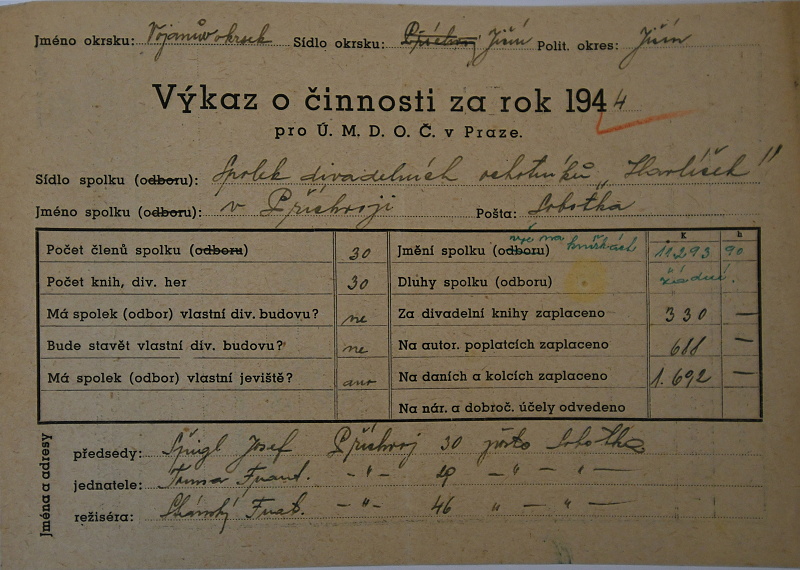 Jméno okrsku: Vojanův okrsek Sídlo okrsku: Jičín Polit. okres: Jičín
Výkaz o činnosti za rok 1944
pro Ú. M. D. O. Č. v Praze.
Sídlo spolku (odboru): Spolek divadelních ochotníků „Havlíček"
Jméno spolku (odboru): v Příchvoji Pošta: Sobotka
Počet členů spolku (odboru) 30
Počet knih, div. her 30
Má spolek (odbor) vlastní div. budovu? ne
Bude stavět vlastní div. budovu? ne
Má spolek (odbor) vlastní jeviště? ano
K h
Jmění spolku (odboru) vše na knížkách 11.293 90
Dluhy spolku (odboru) žádné.
Za divadelní knihy zaplaceno 330 —
Na autor. poplatcích zaplaceno 688 —
Na daních a kolcích zaplaceno 1.692 —
Na nár. a dobroč. účely odvedeno
Jména a adresy
předsedy: Špingl Josef Příchvoj 30 pošta Sobotka
jednatele: Frant. – " – 29 – " – " –
režiséra: Frant. – " – 46 " – " –